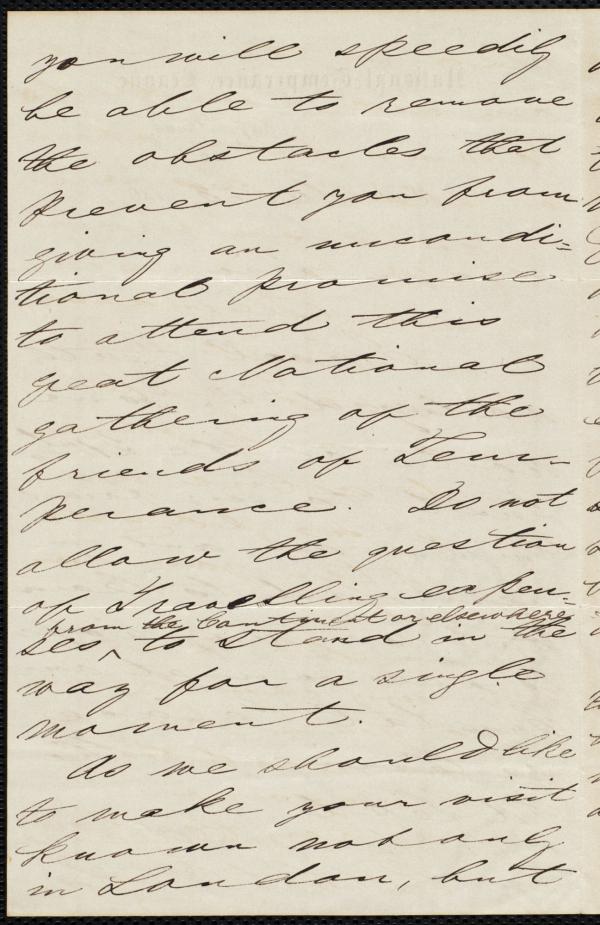 you will speedily
be able to remove
the obstacles that
prevent you from
giving an uncondi=
tional promise
to attend this
great National
gathering of the
friends of Tem-
perance. Do not
allow the question
of Travelling expen-
from the Continent or elsewhere
ses ^ to stand in the
way for a single
moment.
As we should like
to make your visit
known not only
in London, but